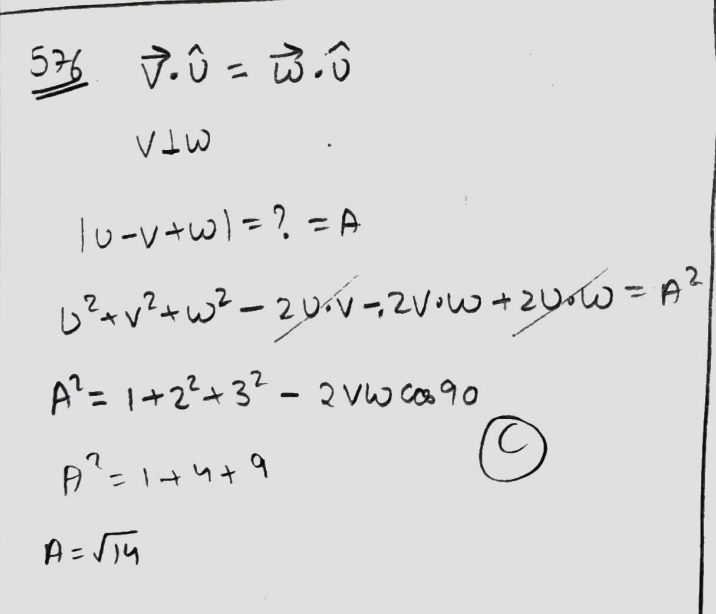 576 v⃗.û = w⃗.û
v⊥w
|u-v+w| = ? = A
u²+v²+w² - 2u.v - 2v.w + 2u.w = A²
A² = 1+2²+3² - 2vw cos90
A² = 1+4+9
C
A = √14